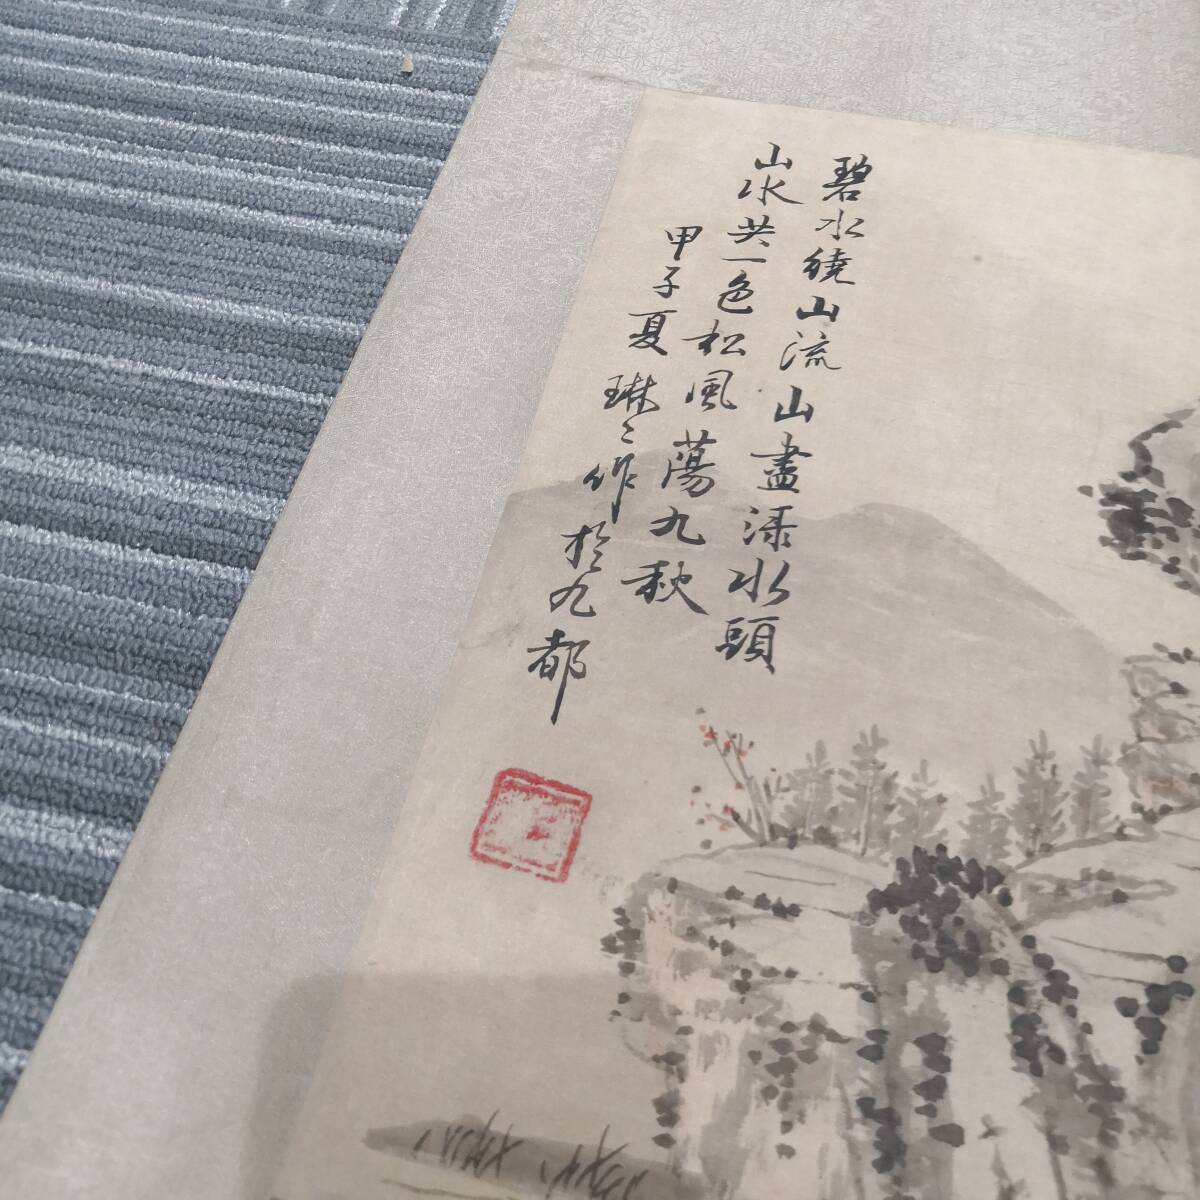 碧水繞山流山盡渌水頭
山水共一色松風蕩九秋
甲子夏琳〻作於九都